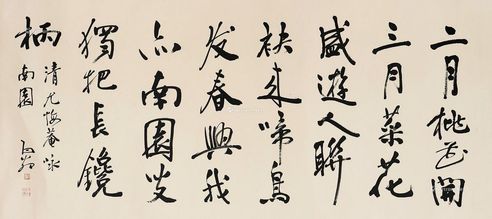 二月桃花開
三月菜花
盛遊人聯
袂来啼鳥
发春興我
亦南園叟
獨把長鑱
柄
清尤悔菴咏
南園